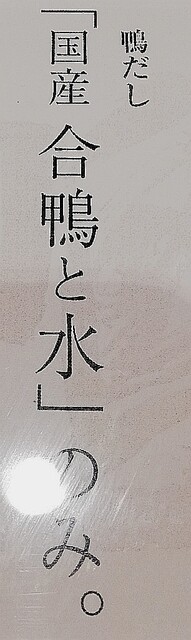 鴨だし
「国産 合鴨と水」のみ。